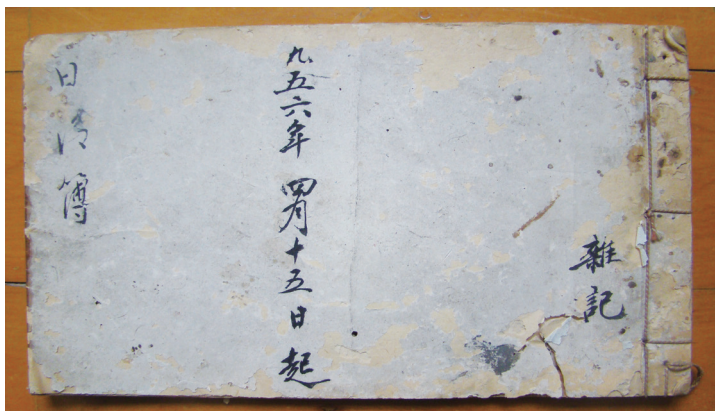 雜記
九五六年 四月十五日起
日清簿